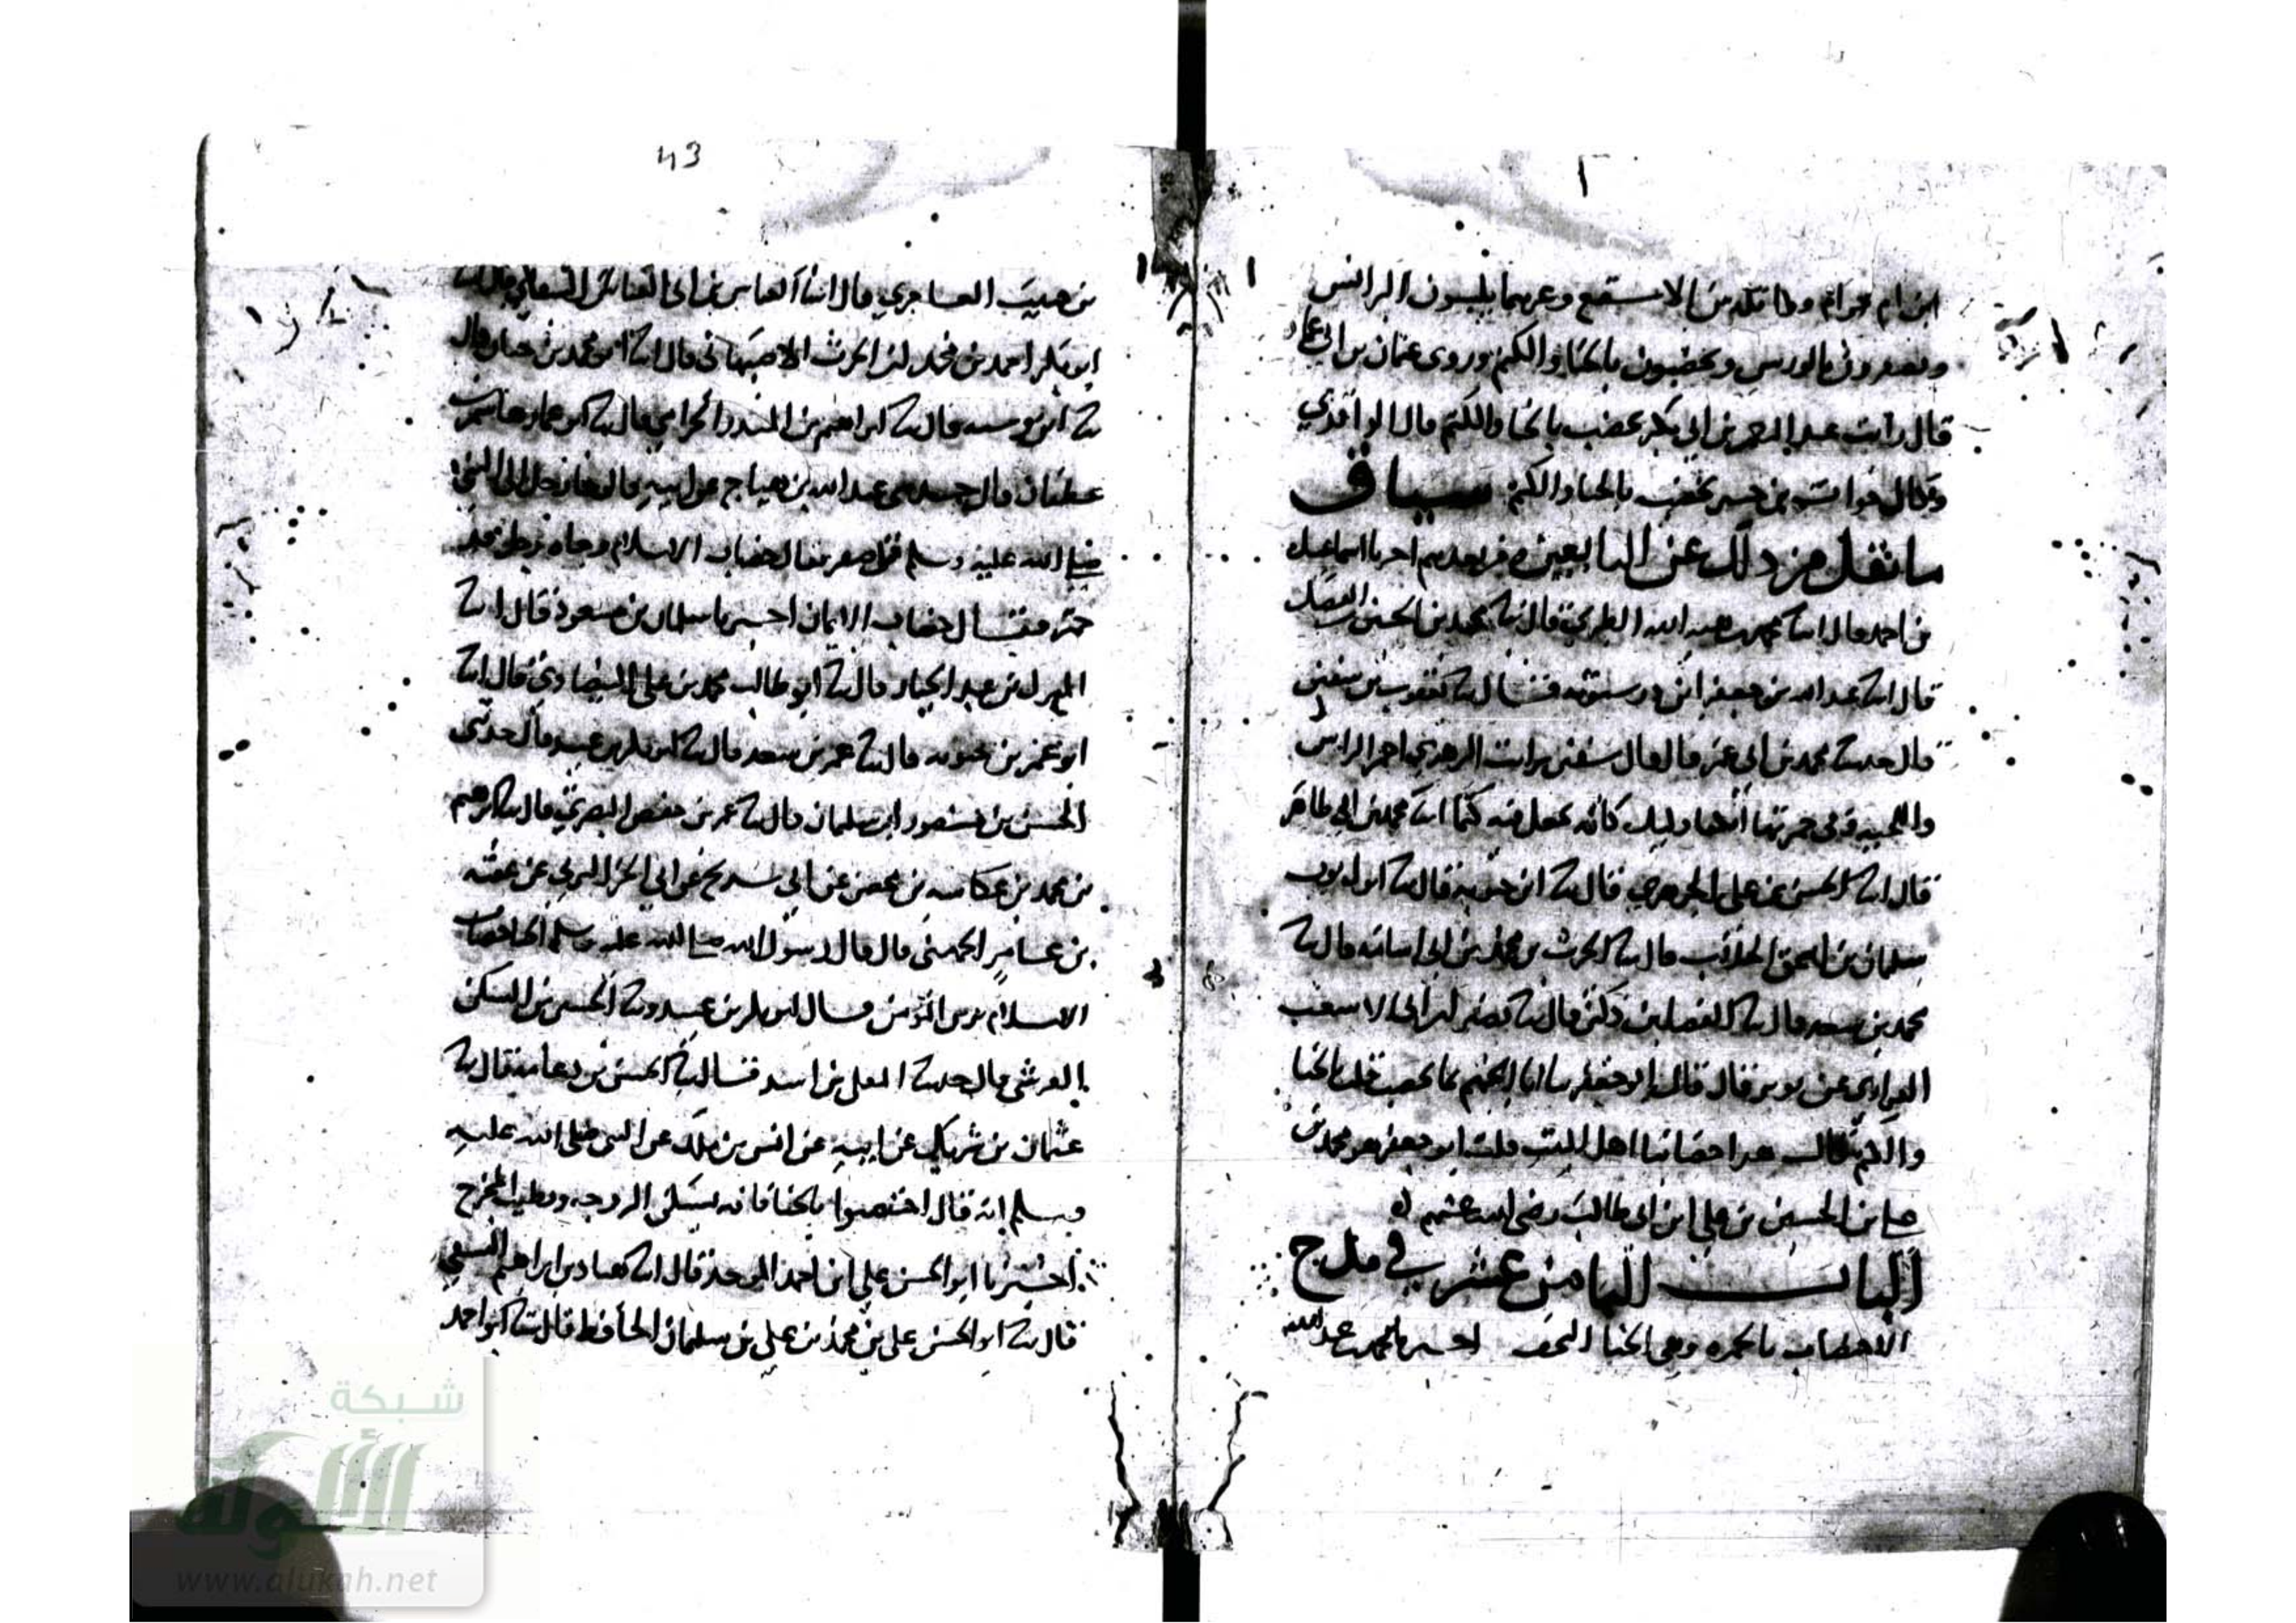 ابن ام حرام وواثلة بن الاسقع وغيرهما يلبسون البرانس
ويصفرون بالورس ويخضبون بالحنا والكتم وروى عثمان بن ابي
قال رايت عبد الرحمن بن ابي بكر يخضب بالحنا والكتم قال الواقدي
وكان خوات بن جبير يخضب بالحنا والكتم سياق
ما نقل من ذلك عن التابعين ومن بعدهم اخبرنا اسماعيل
بن احمد قال انبا محمد بن هبة الله الطبري قال نبا محمد بن الحسين بن الفضل
قال انبا عبد الله بن جعفر ابن درستويه فقال نبا يعقوب بن سفين
قال حدثنا محمد بن ابي عمر قال قال سفين رايت الزهري احمر الراس
واللحية وفي حمرتها كانه يجعل فيه كتما انبا محمد بن ابي طاهر
قال انبا الحسن بن علي الجوهري قال نبا ابن حيويه قال نبا ابو ايوب
سليمان بن اسحق الجلاب قال نبا الحرث بن محمد بن ابي اسامه قال نبا
محمد بن سعد قال نبا الفضل بن دكين قال نبا نصير ابن ابي الاشعث
عن ثوير قال قال ابو جعفر يا ابا الجهم بما تخضب قلت بالحنا
والكتم قال هذا خضابنا اهل البيت قلت ابو جعفر هو محمد بن
علي بن الحسين بن علي ابن ابي طالب رضي الله عنهم
الباب الثامن عشر في مدح
الاختضاب بالحمره وهي الحنا اخبرنا محمد بن عبد الله
بن حبيب العامري قال انبا
ابو بكر احمد بن محمد ابن الحرث الاصبهاني قال انبا ابو محمد بن حيان قال
قال نبا ابراهيم بن المنذر الحزامي قال نبا
قال حدثني عبد الله بن هياج عن ابيه قال جا رجل الى النبي
صلى الله عليه وسلم فقال خضاب الاسلام وجاه رجل قد
حمر فقال خضاب الايمان اخبرنا سلمان بن مسعود قال انبا
المبارك بن عبد الجبار قال نبا ابو طالب محمد بن علي البيضاوي قال انبا
ابو عمر بن حيويه قال نبا عمر بن سعد قال نبا ابو بكر بن عبيد قال حدثني
الحسين بن منصور ابن سليمان قال نبا عمر بن حفص البصري قال نبا ابراهيم
بن محمد بن عكاشه بن محصن عن ابي شريح عن ابي الخير اليزني عن عقبه
بن عامر الجهني قال قال رسول الله صلى الله عليه وسلم الحنا خضاب
الاسلام يزين المؤمن قال ابو بكر بن عبيد ونبا الحسين بن السكن
القرشي قال حدثنا المعلى بن اسد فقال نبا الحسن بن دعامة قال نبا
عثمان بن شريك عن ابيه عن انس بن ملك عن النبي صلى الله عليه
وسلم انه قال اختضبوا بالحنا فانه يسكن الروعه ويطيب الريح
اخبرنا ابو الحسن علي ابن احمد الموحد قال انبا هناد بن ابراهيم النسفي
قال نبا ابو الحسن علي بن محمد بن علي بن سليمان الحافظ قال نبا ابو احمد
43
شبكة
الألوكة
www.alukah.net